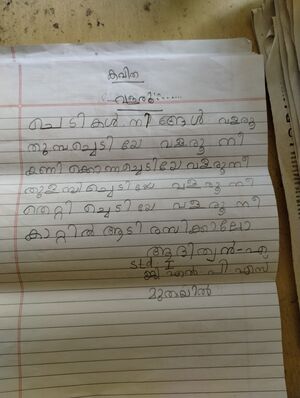 കവിത
വളരൂ......
ചെടികൾ നിങ്ങൾ വളരൂ
തുമ്പച്ചെടിയേ വളരൂ നീ
കണിക്കൊന്നച്ചെടിയേ വളരൂ നീ
തുളസിച്ചെടിയേ വളരൂ നീ
തെറ്റിച്ചെടിയേ വളരൂ നീ
കാറ്റിൽ ആടി രസിക്കാലോ
ആദിത്യൻ-എ
std. I
ജി എൻ പി എസ്
മുതയിൽ